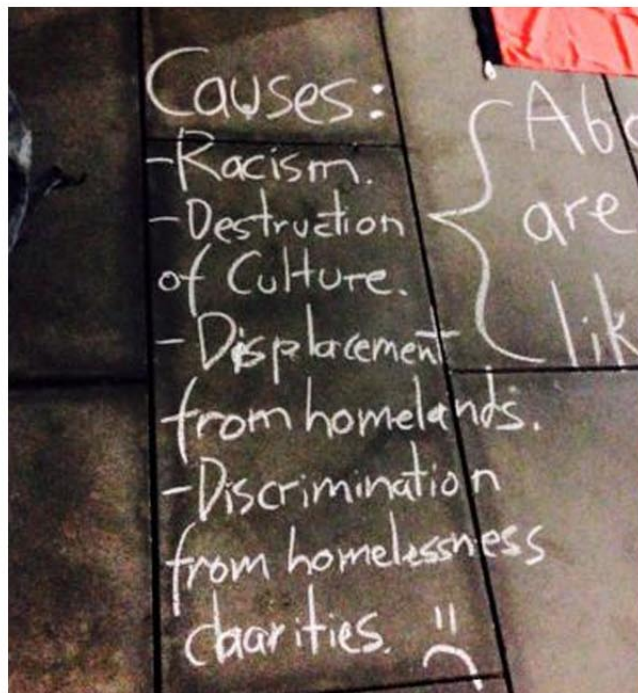 Causes:
-Racism.
-Destruction
of Culture.
-Displacement
from homelands.
-Discrimination
from homelessness
charities. :(
are